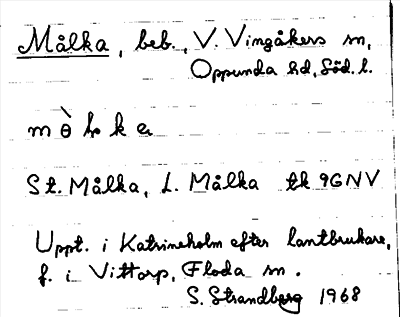 Målka, beb., V. Vingåkers sn,
Oppunda hd, Söd. l.
St. Målka, L. Målka tk 9GNV
Uppt. i Katrineholm efter lantbrukare,
f. i Vittorp, Floda sn.
S. Strandberg 1968